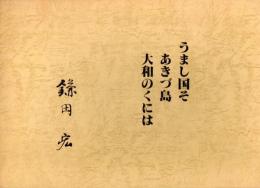 うまし国そ
あきづ島
大和のくには
鎌田宏